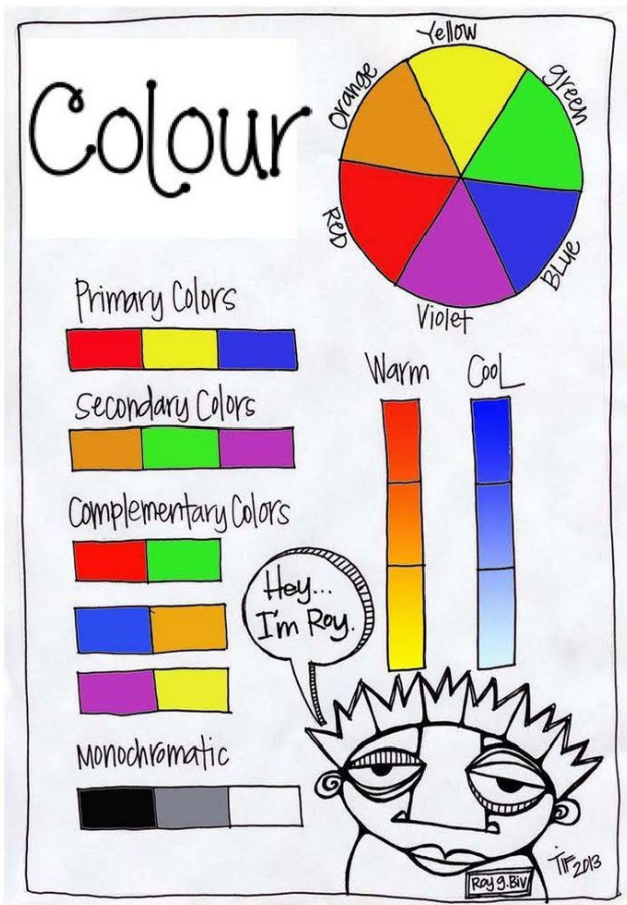 Colour
Yellow
Orange
green
Red
Blue
Violet
Primary Colors
Secondary Colors
Complementary Colors
Monochromatic
Warm
Cool
Hey...
I'm Roy.
Roy g. Biv
TIF 2013